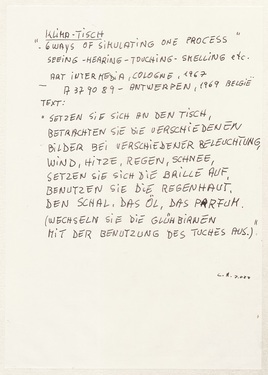 KLIMA-TISCH
"6 WAYS OF SIMULATING ONE PROCESS"
SEEING-HEARING-TOUCHING-SMELLING etc.
ART INTERMEDIA, COLOGNE, 1967
A 37 90 89 - ANTWERPEN, 1969 BELGIË
TEXT:
"SETZEN SIE SICH AN DEN TISCH,
BETRACHTEN SIE DIE VERSCHIEDENEN
BILDER BEI VERSCHIEDENER BELEUCHTUNG,
WIND, HITZE, REGEN, SCHNEE,
SETZEN SIE SICH DIE BRILLE AUF,
BENUTZEN SIE DIE REGENHAUT,
DEN SCHAL, DAS ÖL, DAS PARFUM.
(WECHSELN SIE DIE GLÜHBIRNEN
MIT DER BENUTZUNG DES TUCHES AUS.)"